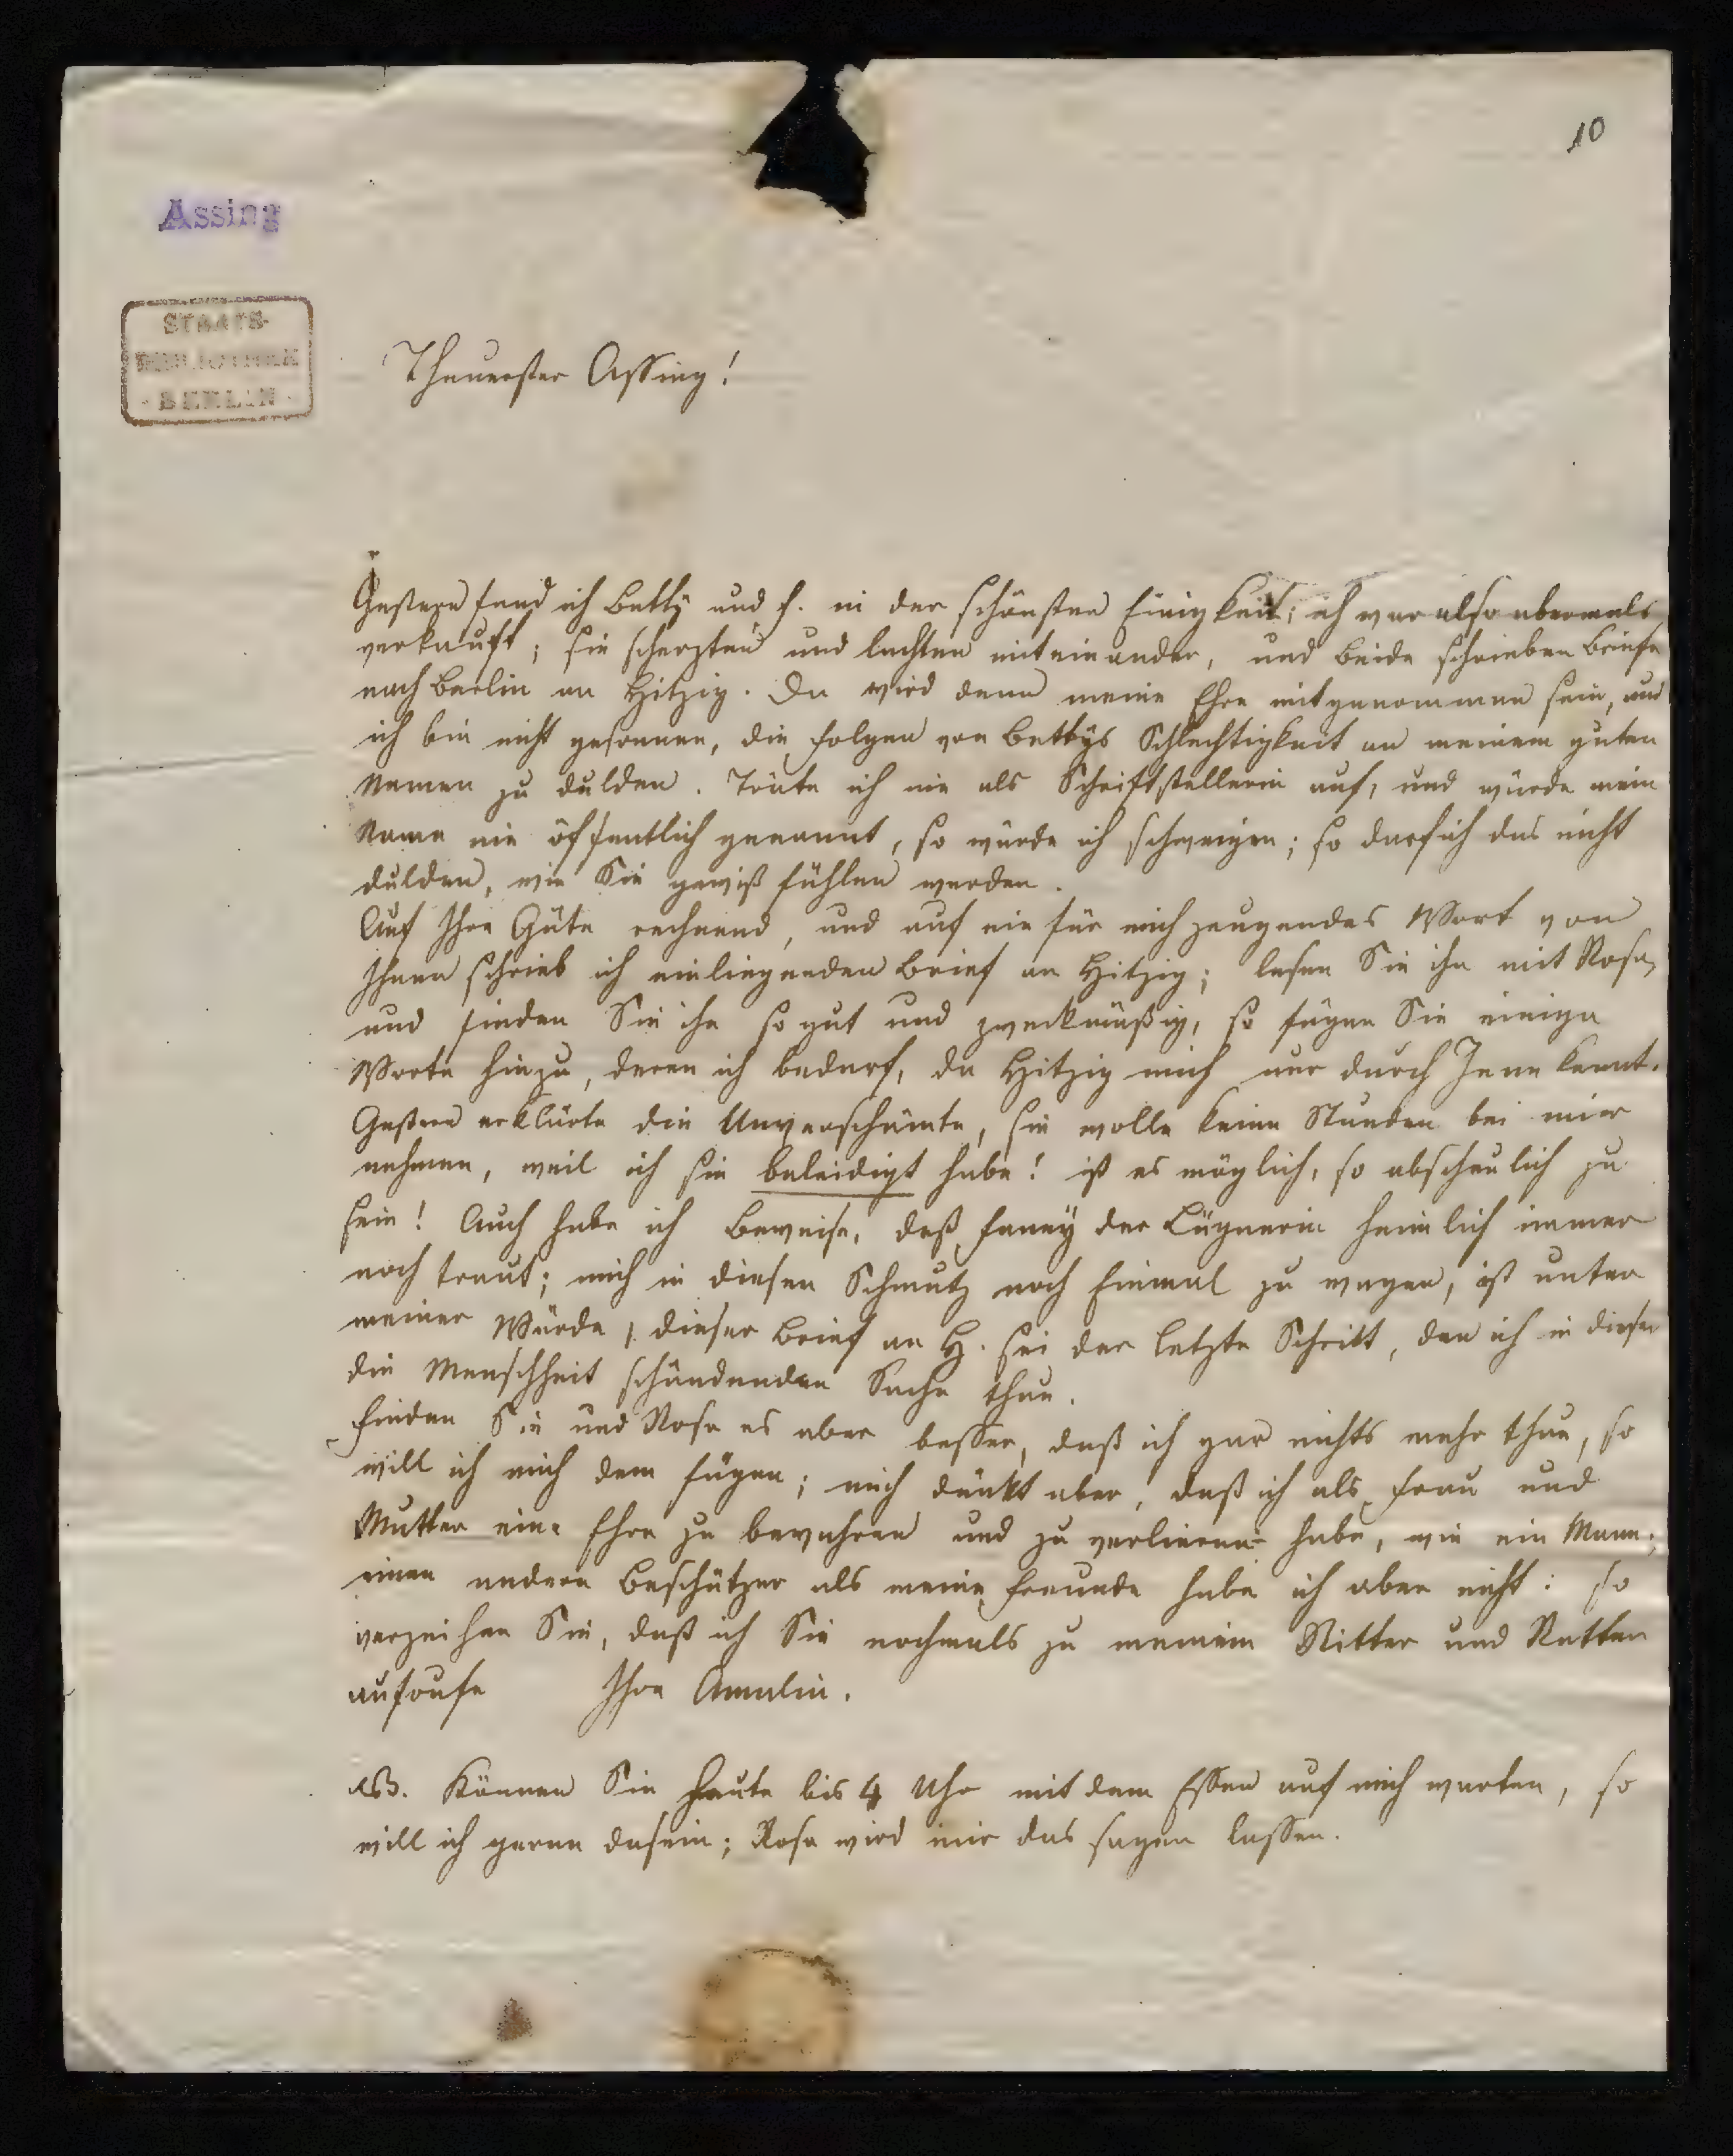 10
Assing
STAATS-
BIBLIOTHEK
· BERLIN ·
Theuerster Assing!
Gestern fand ich Betty und F. in der schönsten Einigkeit; ich war also abermals
verkauft; sie scherzten und lachten miteinander, und beide schrieben Briefe
nach Berlin an Hitzig. Da wird denn meine Ehre mitgenommen sein, und
ich bin nicht gesonnen, die Folgen von Bettys Schlechtigkeit an meinem guten
Namen zu dulden. Träte ich nie als Schriftstellerin auf, und würde mein
Name nie öffentlich genannt, so würde ich schweigen; so darf ich das nicht
dulden, wie Sie gewiß fühlen werden.
Auf Ihre Güte rechnend, und auf ein für mich zeugendes Wort von
Ihnen schrieb ich einliegenden Brief an Hitzig; lesen Sie ihn mit Rosa,
und finden Sie ihn so gut und zweckmäßig, so fügen Sie einige
Worte hinzu, deren ich bedarf, da Hitzig mich nur durch Jene kennt.
Gestern erklärte die Unverschämte, sie wolle keine Stunden bei mir
nehmen, weil ich sie beleidigt habe! ist es möglich, so abscheulich zu
sein! Auch habe ich Beweise, daß Fanny der Lügnerin heimlich immer
noch traut; mich in diesen Schmutz noch Einmal zu wagen, ist unter
meiner Würde, dieser Brief an H. sei der letzte Schritt, den ich in dieser
die Menschheit schändenden Sache thue.
Finden Sie und Rosa es aber besser, daß ich gar nichts mehr thue, so
will ich mich dem fügen; mich dünkt aber, daß ich als Frau und
Mutter eine Ehre zu bewahren und zu verlieren habe, wie ein Mann;
einen andern Beschützer als meine Freunde habe ich aber nicht: so
verzeihen Sie, daß ich Sie nochmals zu meinem Ritter und Retter
aufrufe Ihre Amalie.
NB. Können Sie heute bis 4 Uhr mit dem Essen auf mich warten, so
will ich gerne dasein; Rosa wird mir das sagen lassen.